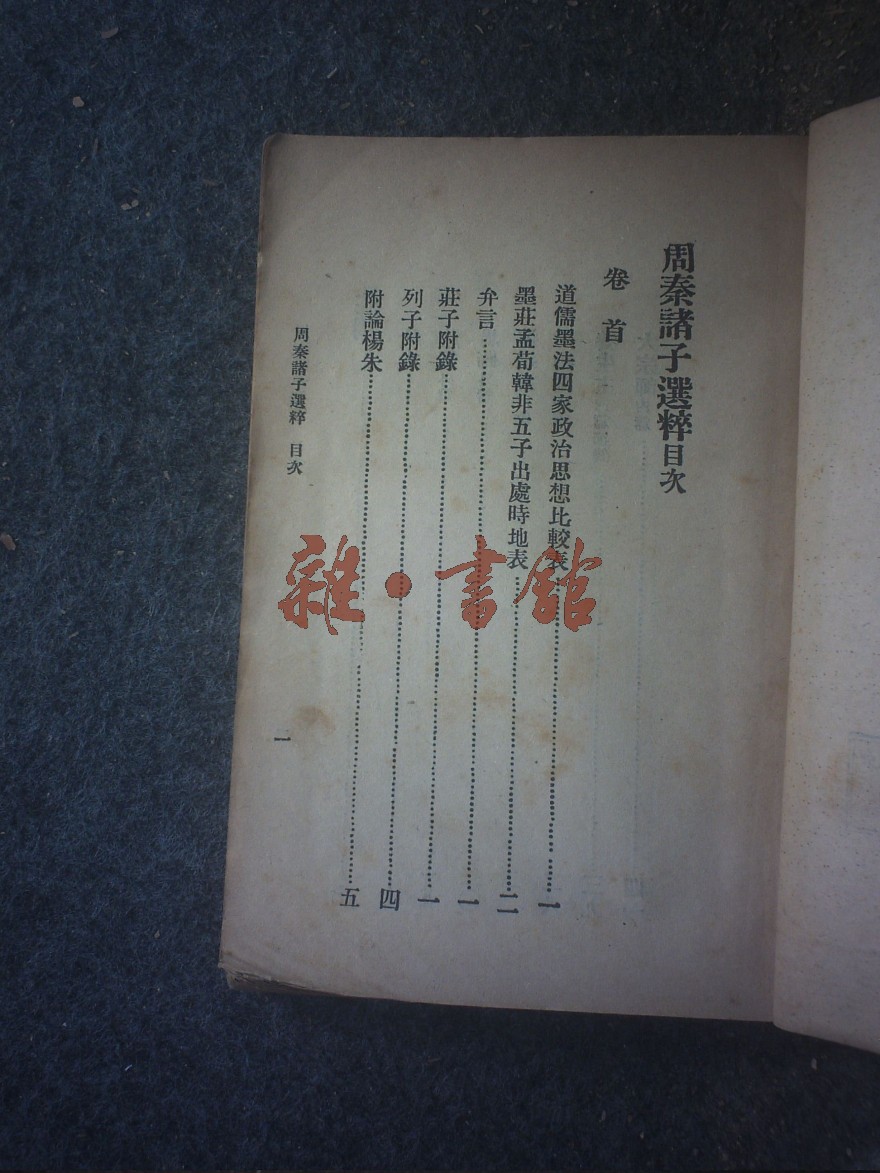 周秦諸子選粹目次
卷首
道儒墨法四家政治思想比較表……一
墨莊孟荀韓非五子出處時地表……二
弁言……一
莊子附錄……一
列子附錄……四
附論楊朱……五
周秦諸子選粹 目次
一
雜·書館